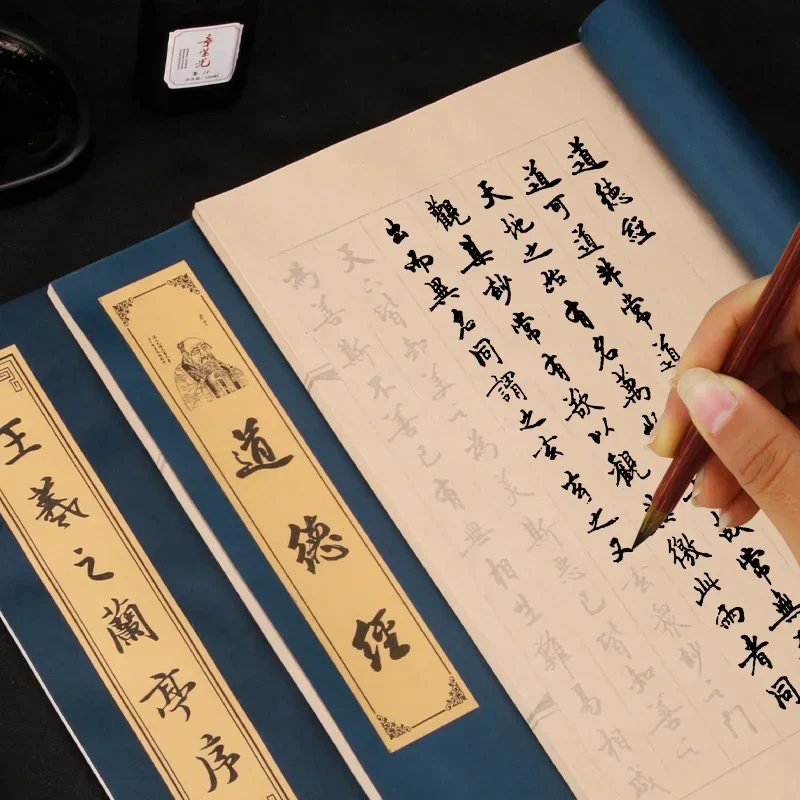 道德經
道可道非常道
天地之始有名萬
故常無
觀其妙常有欲以觀其徼此兩者同
出而異名同謂之玄玄之又玄眾妙之門
天下皆知美之為美斯惡已皆知善之
為善斯不善已有無相生難易相成
道德經
王羲之蘭亭序
墨汁